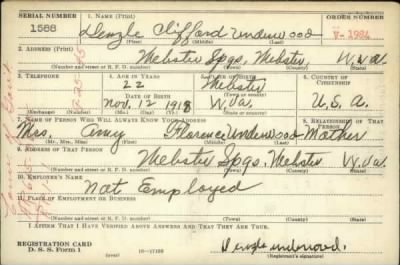 SERIAL NUMBER 1. NAME (Print) ORDER NUMBER
1588 Denzle Clifford Underwood V-1984
(First) (Middle) (Last)
2. ADDRESS (Print)
Webster Spgs, Webster W.Va.
(Number and street or R. F. D. number) (Town) (County) (State)
3. TELEPHONE 4. AGE IN YEARS 5. PLACE OF BIRTH 6. COUNTRY OF CITIZENSHIP
22 Webster
DATE OF BIRTH (Town or county)
Nov. 12 1918 W.Va. U.S.A.
(Exchange) (Number) (Mo.) (Day) (Yr.) (State or country)
7. NAME OF PERSON WHO WILL ALWAYS KNOW YOUR ADDRESS 8. RELATIONSHIP OF THAT PERSON
Mrs. Amy Florence Underwood Mother
(Mr., Mrs., Miss) (First) (Middle) (Last)
9. ADDRESS OF THAT PERSON
Webster Spgs, Webster W.Va.
(Number and street or R. F. D. number) (Town) (County) (State)
10. EMPLOYER'S NAME
Not Employed
11. PLACE OF EMPLOYMENT OR BUSINESS
(Number and street or R. F. D. number) (Town) (County) (State)
I AFFIRM THAT I HAVE VERIFIED ABOVE ANSWERS AND THAT THEY ARE TRUE.
REGISTRATION CARD
D. S. S. Form 1 16-17105 Denzle underwood.
(Registrant's signature)